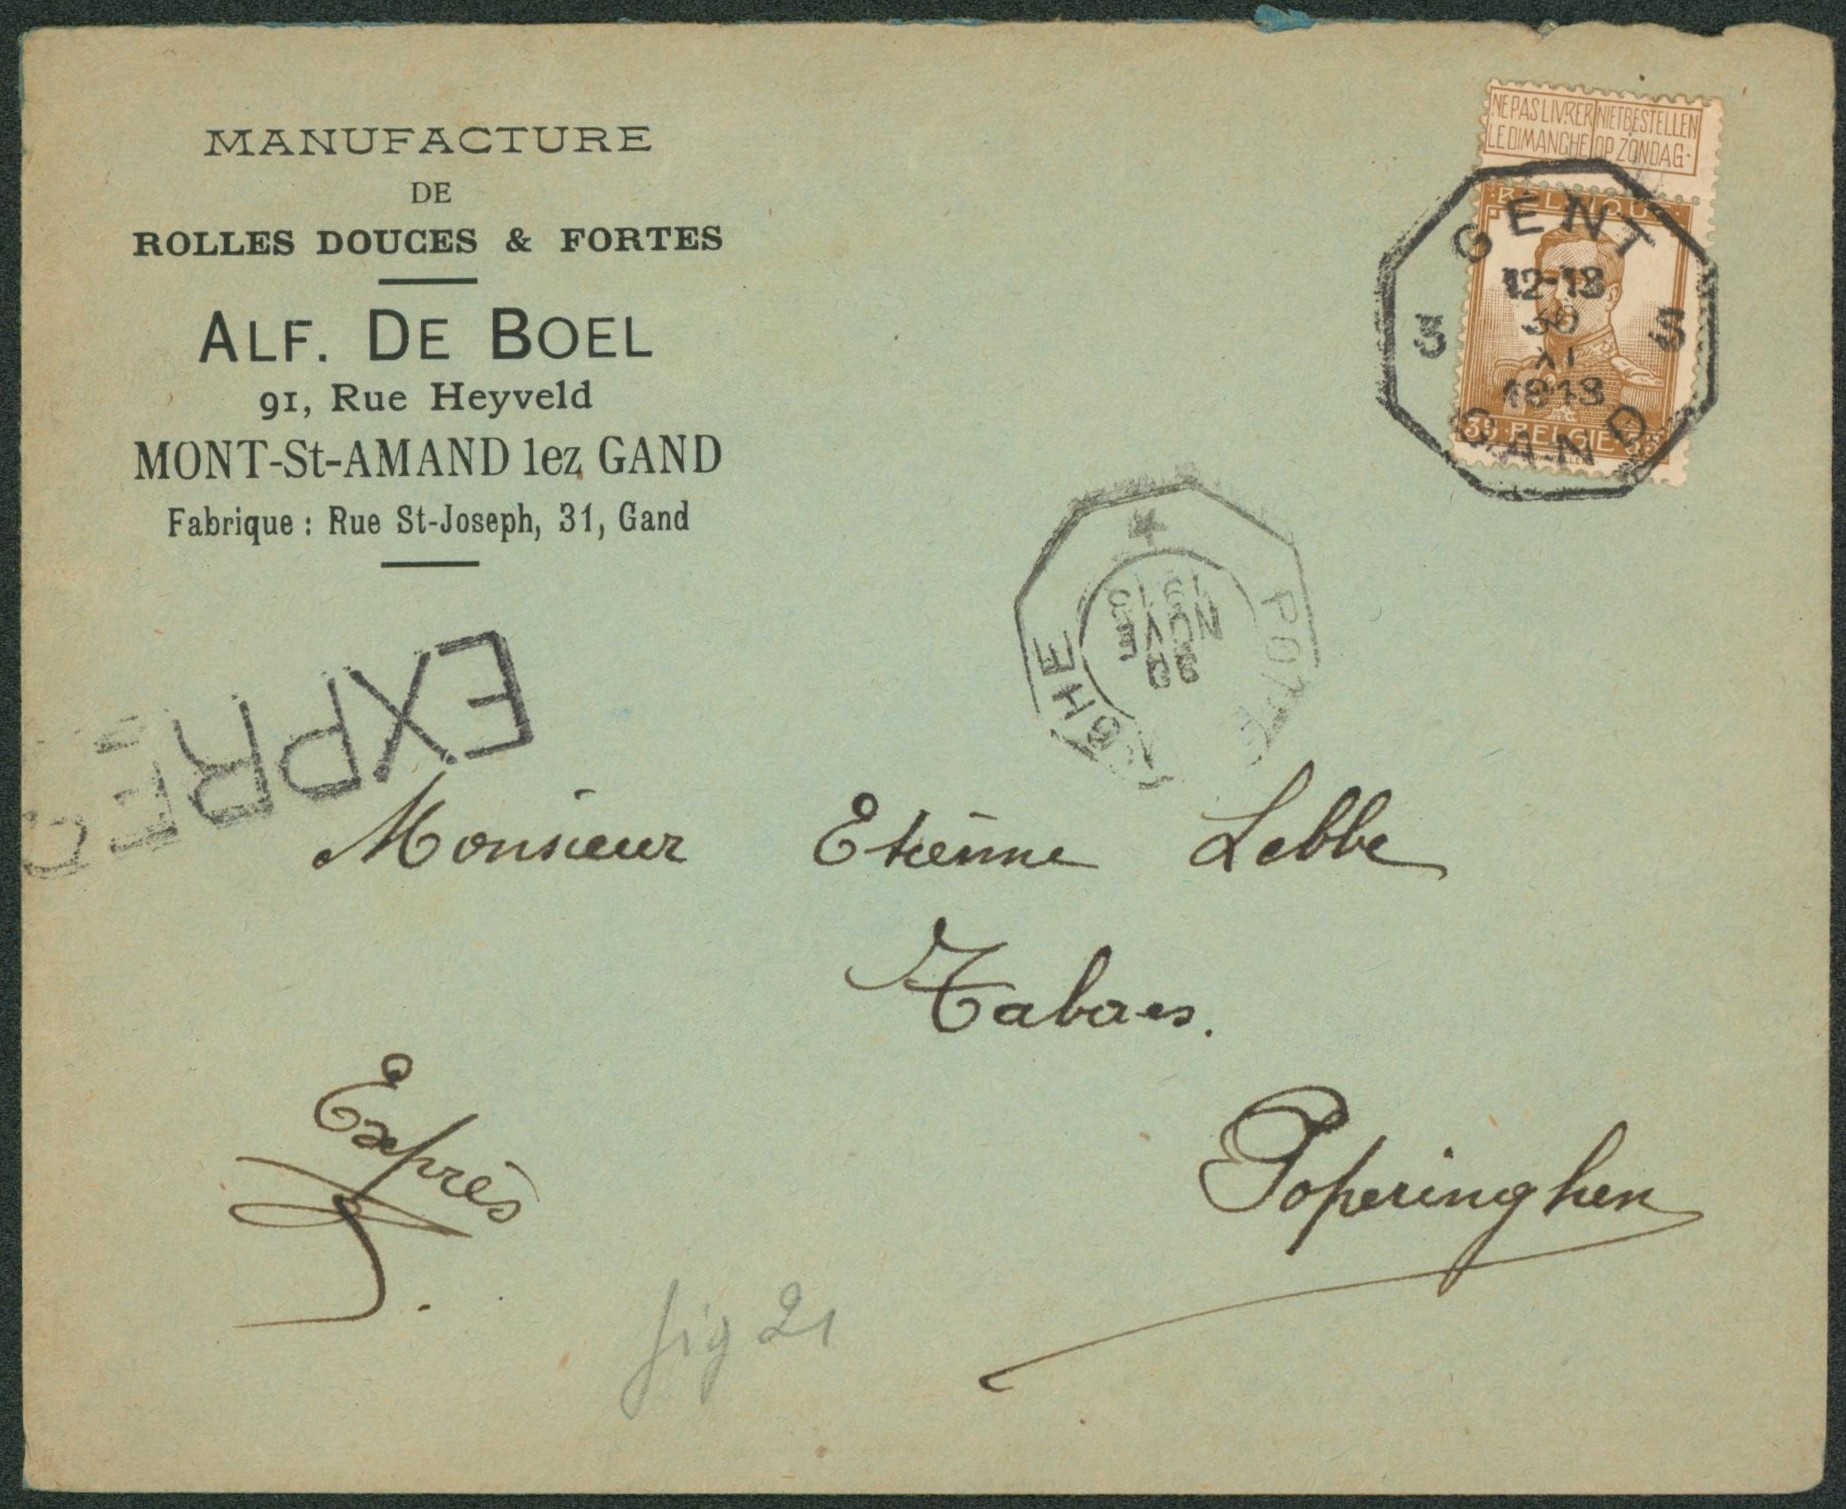 MANUFACTURE
DE
ROLLES DOUCES & FORTES
ALF. DE BOEL
91, Rue Heyveld
MONT-St-AMAND lez GAND
Fabrique : Rue St-Joseph, 31, Gand
NE PAS LIVRER NIET BESTELLEN
LE DIMANCHE OP ZONDAG
BELGIQUE
GENT
12-13
3 S
30
XI
1913
GAND
BELGIE
GHE
NOVE
EXPRE
Monsieur Etiènne Lebbe
Tabaes.
Poperinghen
Exprès
fig 21